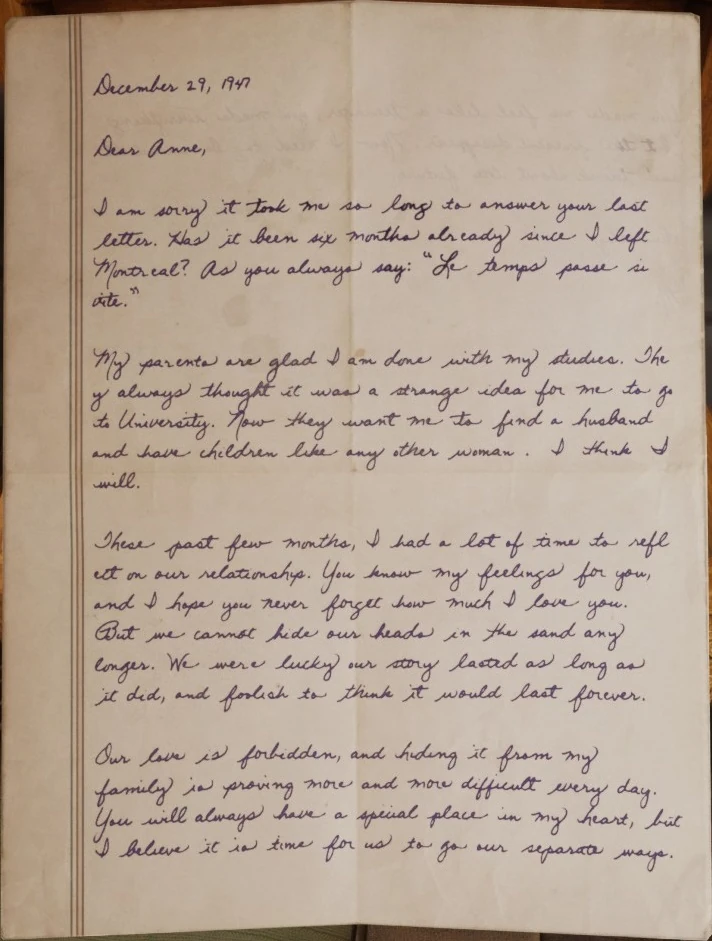 December 29, 1947
Dear Anne,
I am sorry it took me so long to answer your last
letter. Has it been six months already since I left
Montreal? As you always say: "Le temps passe si
vite."
My parents are glad I am done with my studies. The
y always thought it was a strange idea for me to go
to University. Now they want me to find a husband
and have children like any other woman. I think I
will.
These past few months, I had a lot of time to refl
ect on our relationship. You know my feelings for you,
and I hope you never forget how much I love you.
But we cannot hide our heads in the sand any
longer. We were lucky our story lasted as long as
it did, and foolish to think it would last forever.
Our love is forbidden, and hiding it from my
family is proving more and more difficult every day.
You will always have a special place in my heart, but
I believe it is time for us to go our separate ways.